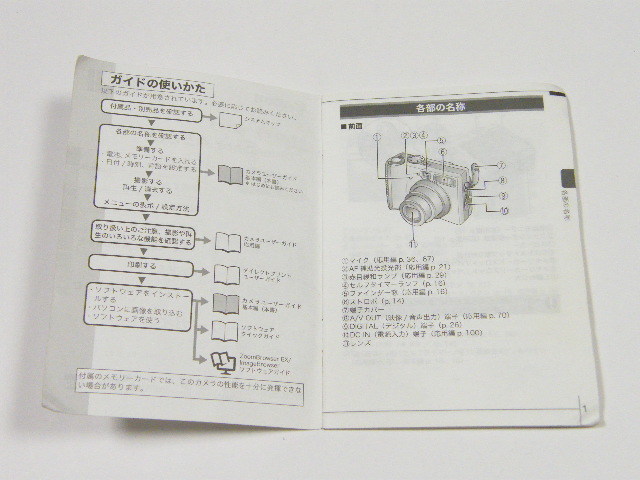 ガイドの使いかた
以下のガイドが用意されています。必要に応じてお読みください。
付属品・別売品を確認する
システムマップ
各部の名称を確認する
準備する
・電池、メモリーカードを入れる
・日付/時刻、言語を設定する
撮影する
再生/消去する
メニューの表示/設定方法
カメラユーザーガイド
基本編(本書)
取り扱い上のご注意、撮影や再
生のいろいろな機能を確認する
カメラユーザーガイド
応用編
印刷する
ダイレクトプリント
ユーザーガイド
・ソフトウェアをインストー
ルする
・パソコンに画像を取り込む
・ソフトウェアを使う
カメラユーザーガイド
基本編(本書)
ソフトウェア
クイックガイド
ZoomBrowser EX/
ImageBrowser
ソフトウェアガイド
付属のメモリーカードでは、このカメラの性能を十分に発揮できな
い場合があります。
各部の名称
■前面
① ②③④
⑤
⑥
⑦
⑧
⑨
⑩
⑪
①マイク(応用編 p. 36、67)
②AF補助光投光部(応用編 p. 21)
③赤目緩和ランプ(応用編 p. 29)
④セルフタイマーランプ(p. 16)
⑤ファインダー窓(応用編 p. 16)
⑥ストロボ(p. 14)
⑦端子カバー
⑧A/V OUT(映像/音声出力)端子(応用編 p. 70)
⑨DIGITAL(デジタル)端子(p. 26)
⑩DC IN(電源入力)端子(応用編 p. 100)
⑪レンズ
各部の名称
1